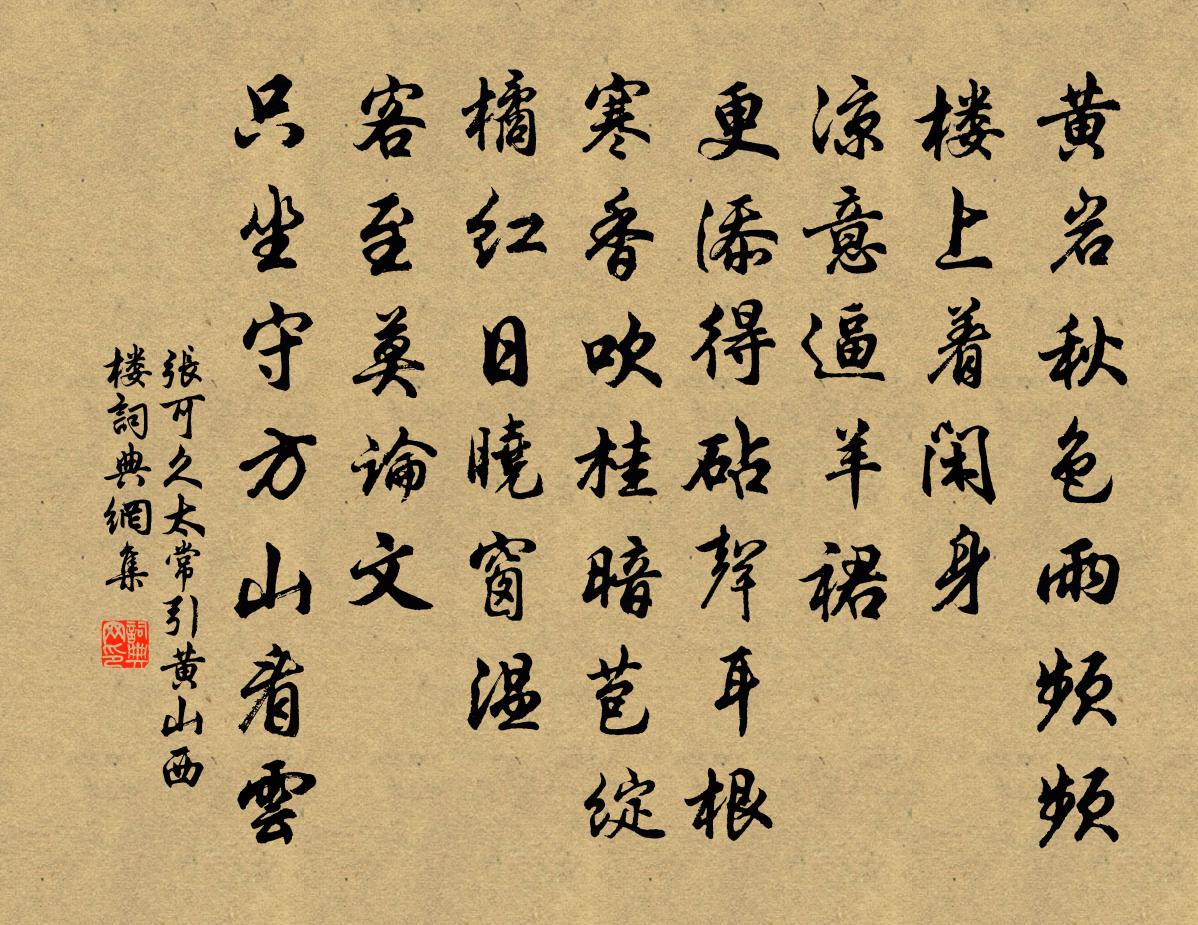 黄岩秋色雨频频
楼上着闲身
凉意逼羊裙
更添得砧聲耳根
寒香吹桂暗苞绽
橘红日曉窗温
客至莫論文
只坐守方山看雲
張可久太常引黄山西
楼詞典網集
詞典网印